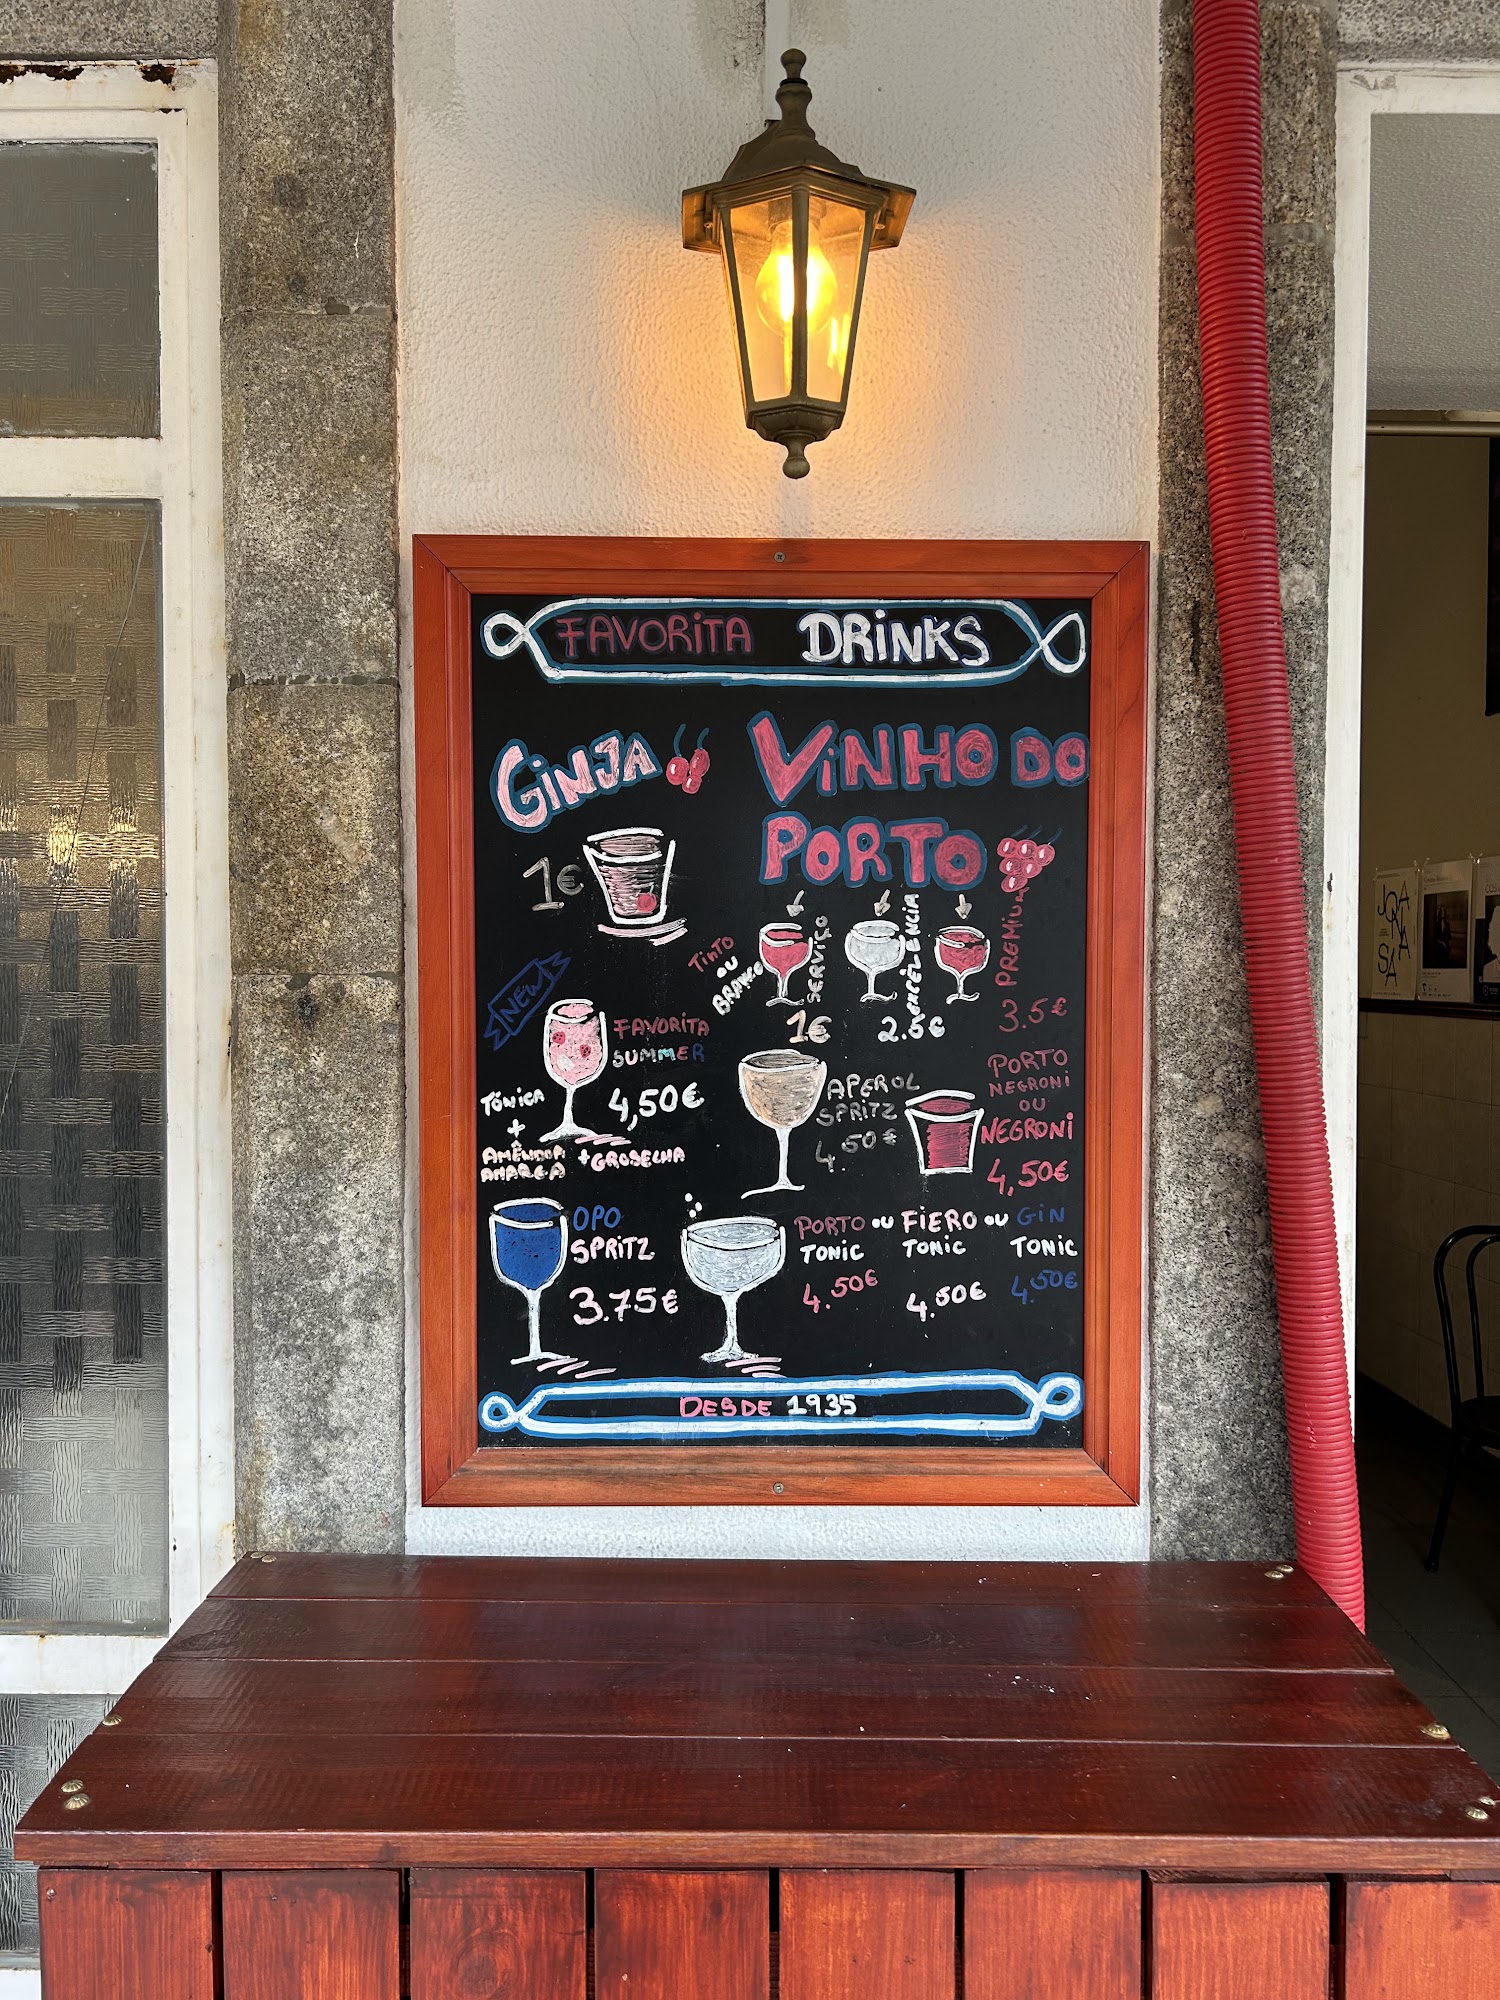 FAVORITA DRINKS
GINJA
1€
VINHO DO
PORTO
TINTO
OU
BRANCO
SERVIÇO
1€
EXCELÊNCIA
2.5€
PREMIUM
3.5€
NEW
FAVORITA
SUMMER
4,50€
TÓNICA
+
AMÊNDOA
AMARGA
+GROSELHA
APEROL
SPRITZ
4.50€
PORTO
NEGRONI
OU
NEGRONI
4,50€
OPO
SPRITZ
3.75€
PORTO OU FIERO OU GIN
TONIC TONIC TONIC
4.50€ 4.50€ 4.50€
DESDE 1935